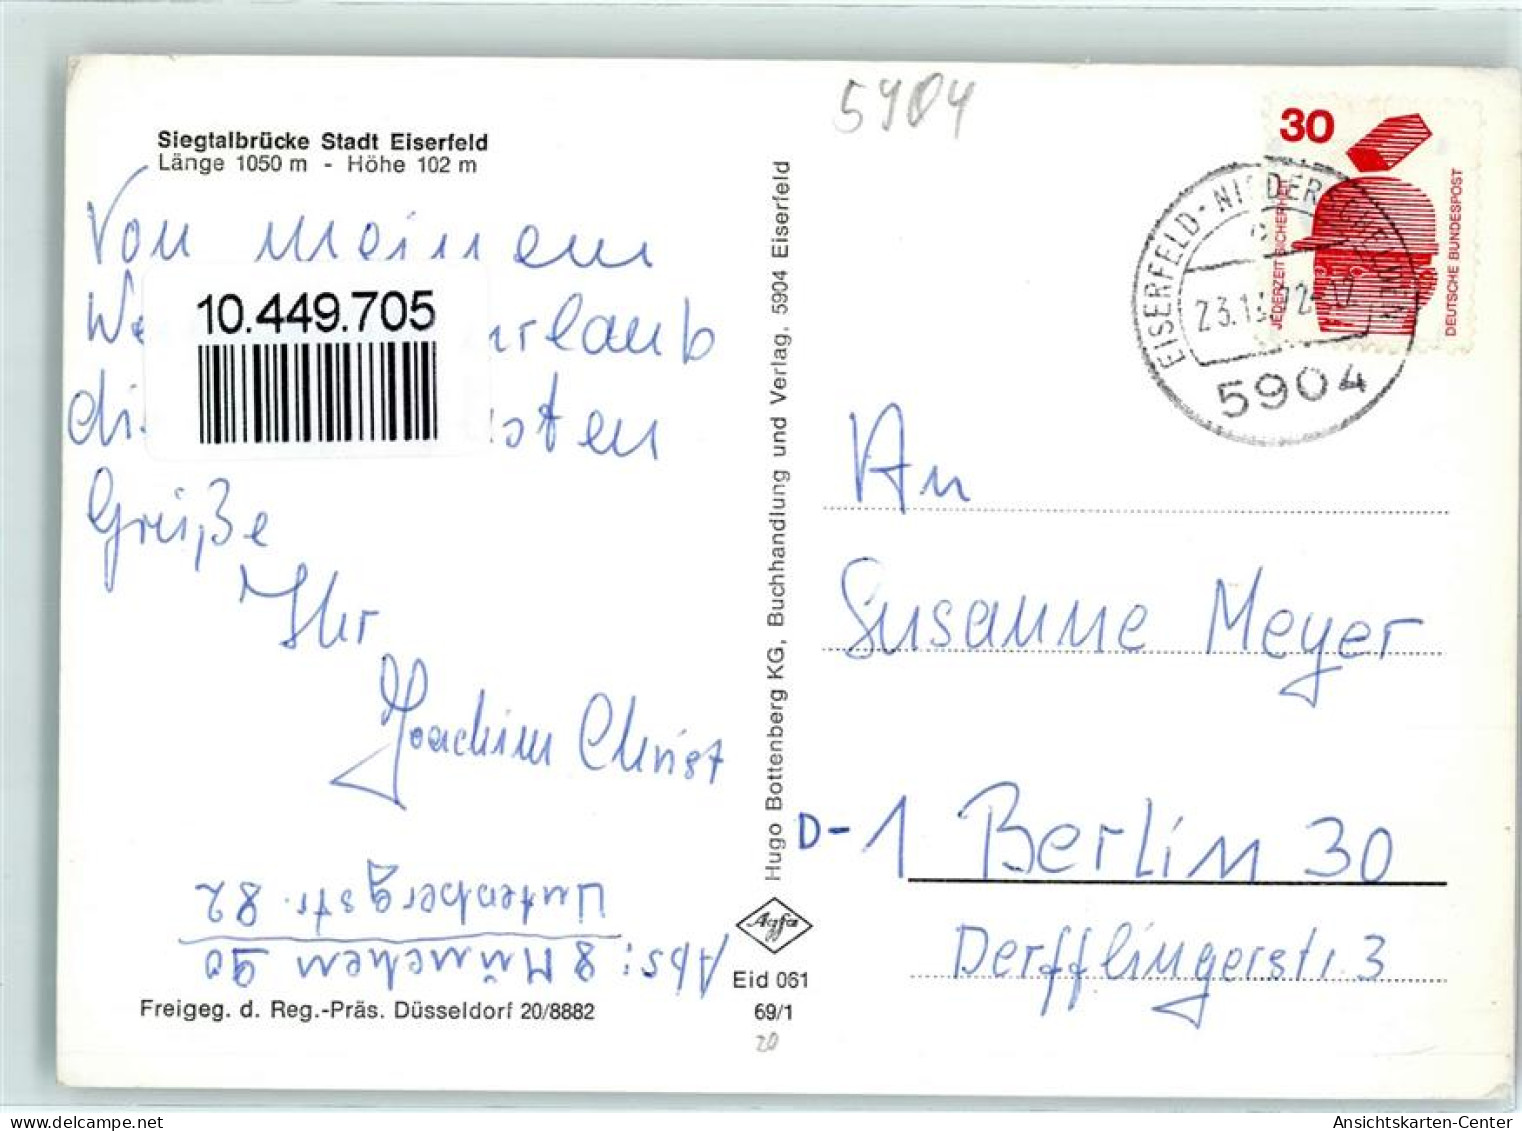 Siegtalbrücke Stadt Eiserfeld
Länge 1050 m - Höhe 102 m
Von meinem
10.449.705
die
Grüße
Ihr
Joachim Christ
Abs: 8 München 90
Untersbergstr. 82
Freigeg. d. Reg.-Präs. Düsseldorf 20/8882
Hugo Bottenberg KG, Buchhandlung und Verlag, 5904 Eiserfeld
Agfa
Eid 061
69/1
20
5904
30
JEDERZEIT SICHERHEIT
DEUTSCHE BUNDESPOST
EISERFELD-NIEDERSCHELDEN
5904
An
Susanne Meyer
D-1 Berlin 30
Derfflingerstr. 3
Ansichtskarten-Center